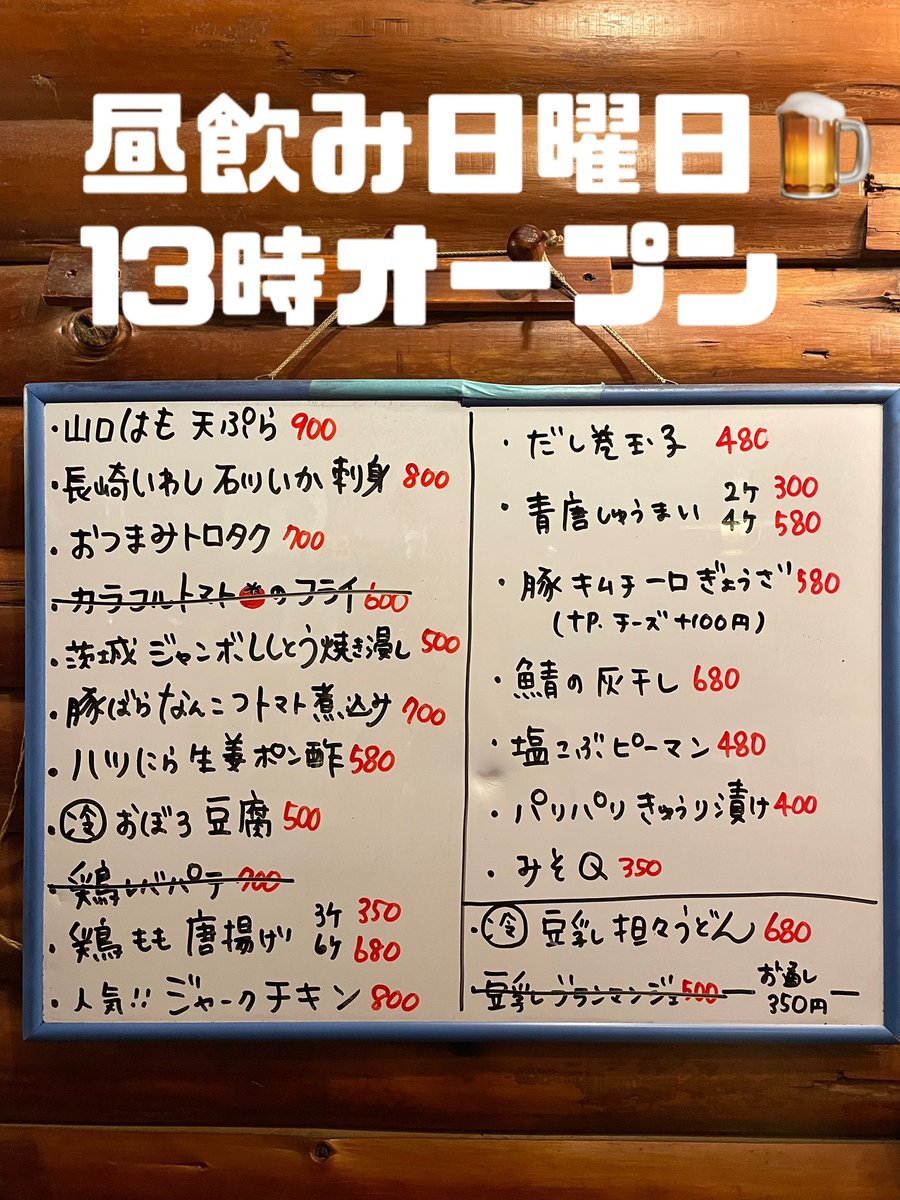 昼飲み日曜日🍺
13時オープン
・山口はも 天ぷら 900
・長崎いわし 石川いか 刺身 800
・おつまみトロタク 700
・カラフルトマト🍅のフライ 600
・茨城 ジャンボししとう焼き浸し 500
・豚ばらなんこつトマト煮込み 700
・ハツにら生姜ポン酢 580
・冷 おぼろ豆腐 500
・鶏レバパテ 700
・鶏もも 唐揚げ 3ケ 350
6ケ 680
・人気!! ジャークチキン 800
・だし巻玉子 480
・青唐しゅうまい 2ケ 300
4ケ 580
・豚キムチ一口ぎょうざ 580
(tP. チーズ+100円)
・鯖の灰干し 680
・塩こぶピーマン 480
・パリパリきゅうり漬け 400
・みそQ 350
・冷 豆乳担々うどん 680
豆乳ブランマンジェ 500
お通し
350円